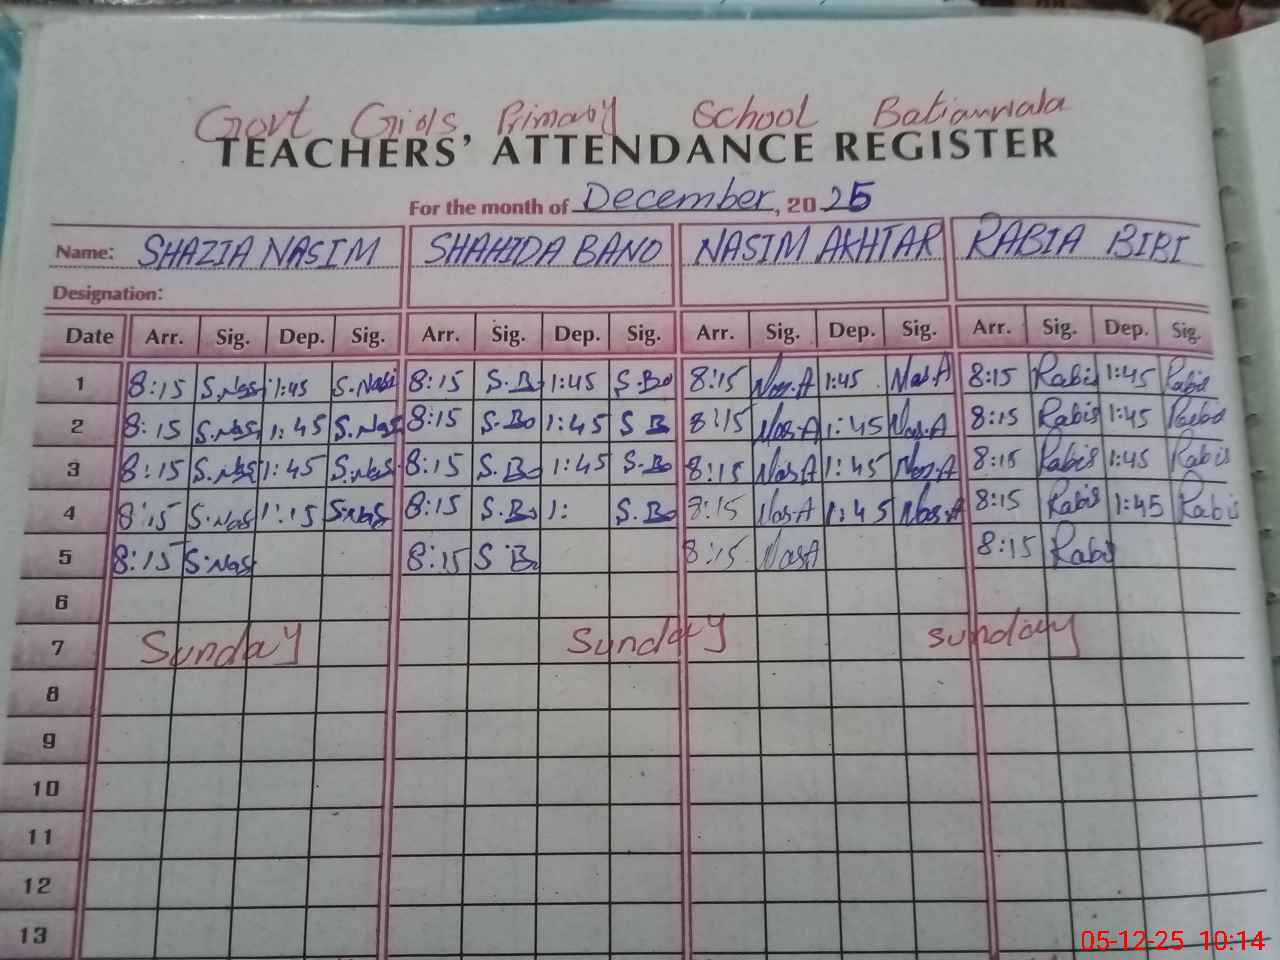 Govt Girls Primary School Batianwala
TEACHERS' ATTENDANCE REGISTER
For the month of December, 2025
Name: SHAZIA NASIM SHAHIDA BANO NASIM AKHTAR RABIA BIBI
Designation:
Date Arr. Sig. Dep. Sig. Arr. Sig. Dep. Sig. Arr. Sig. Dep. Sig. Arr. Sig. Dep. Sig.
1 8:15 S.Nas 1:45 S.Nasi 8:15 S.Bo 1:45 S.Bo 8:15 Nas.A 1:45 Nas.A 8:15 Rabis 1:45 Rabis
2 8:15 S.Nas 1:45 S.Nas 8:15 S.Bo 1:45 S B 8:15 Nas.A 1:45 Nas.A 8:15 Rabis 1:45 Rabis
3 8:15 S.Nas 1:45 S.Nas 8:15 S.Bo 1:45 S.Bo 8:15 Nas.A 1:45 Nas.A 8:15 Rabis 1:45 Rabis
4 8:15 S.Nas 1:15 S.Nas 8:15 S.Bo 1: S.Bo 8:15 Nas.A 1:45 Nas.A 8:15 Rabis 1:45 Rabis
5 8:15 S.Nas 8:15 S B 8:15 Nas.A 8:15 Rabis
6
7 Sunday Sunday Sunday
8
9
10
11
12
13
05-12-25 10:14